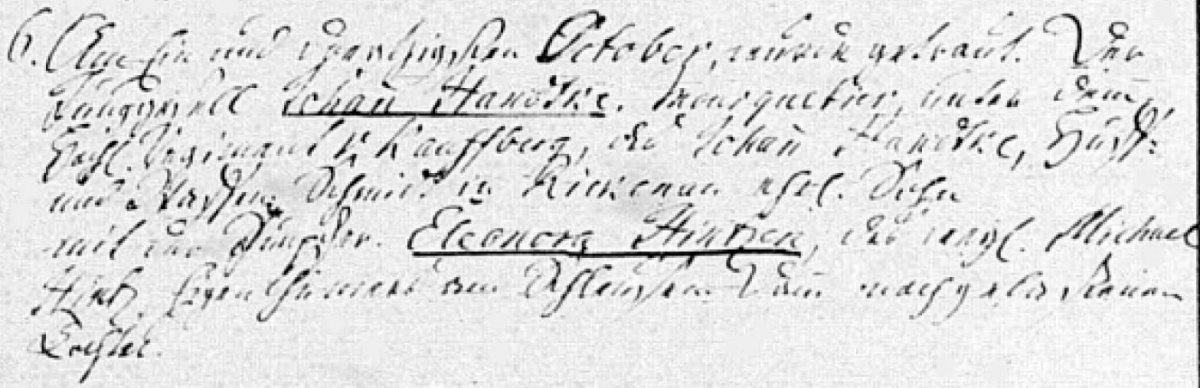 6. Am Ein und zwantzigsten October, wurde getraut. Der
Junggesell Johan̅ Handtke. Mousquetier, unter dem
Hochl. Regiment v. Kauffberg, des Johan̅ Handtke, Huff-
und Waffen Schmidt in Rickenau ehel. Sohn
mit der Jungfer. Eleonora Hintzen, des weyl. Michael
Hintz, Eigenthümers am Schleusen Dam̅ nachgelassenen
Tochter.